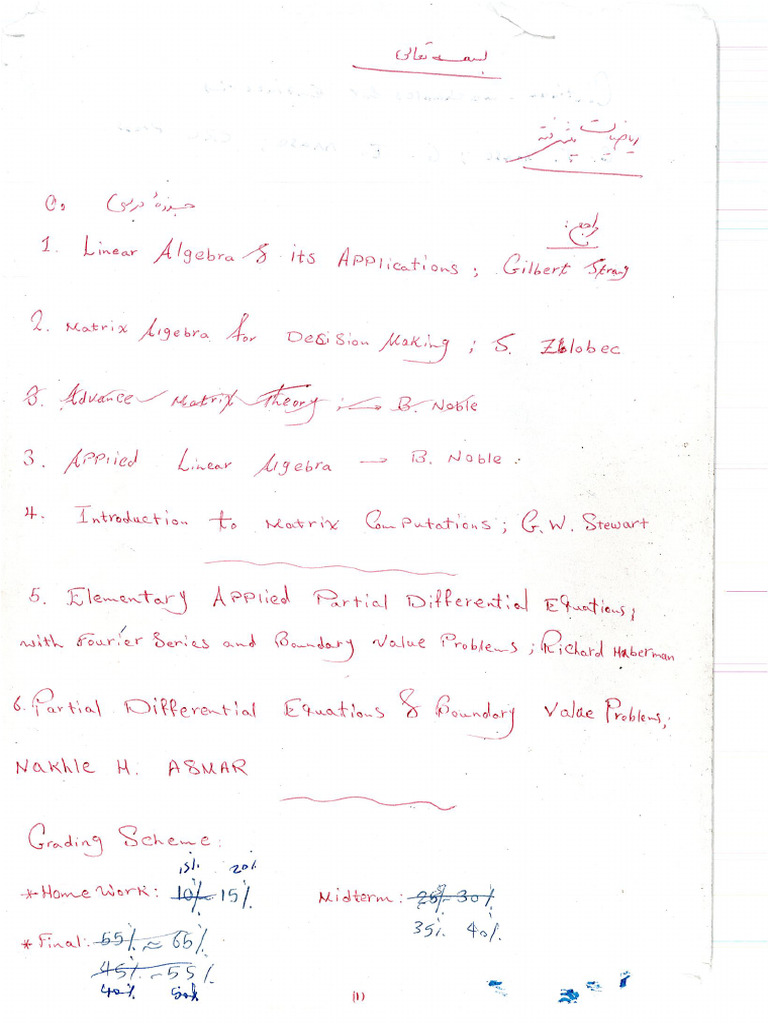 بسمه تعالی
ریاضیات پیشرفته
0. جزوهٔ درسی
مراجع:
1. Linear Algebra & its Applications; Gilbert Strang
2. Matrix Algebra for Decision Making; S. Zlobec
3. Advance Matrix Theory; → B. Noble
3. Applied Linear Algebra → B. Noble.
4. Introduction to Matrix Computations; G.W. Stewart
5. Elementary Applied Partial Differential Equations;
with Fourier Series and Boundary Value Problems; Richard Haberman
6. Partial Differential Equations & Boundary Value Problems;
Nakhle H. ASMAR
Grading Scheme:
15% 20%
* Home Work: 10% - 15% Midterm: 25% - 30%
35% 40%
* Final: 55% ≈ 65%
45% - 55%
40% 50%
(1)